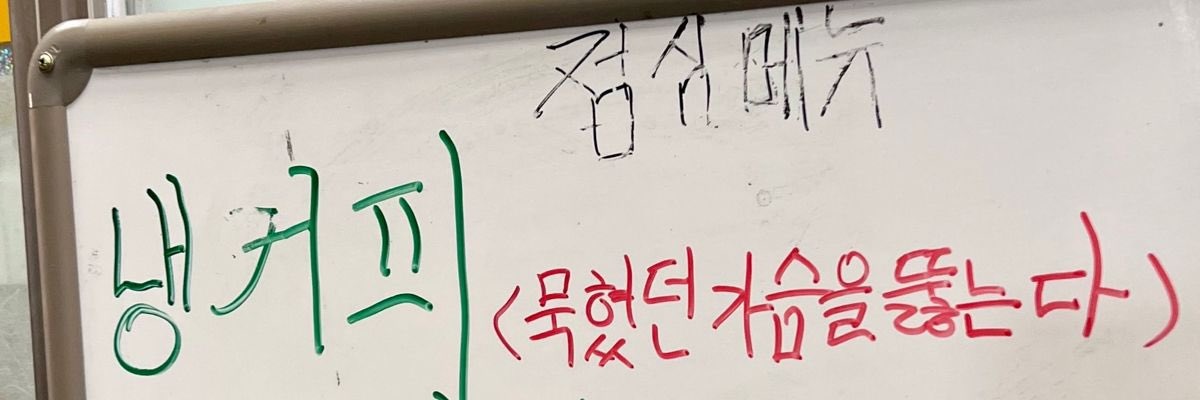 점심메뉴
냉커피 (묵혔던 가슴을 뚫는다)